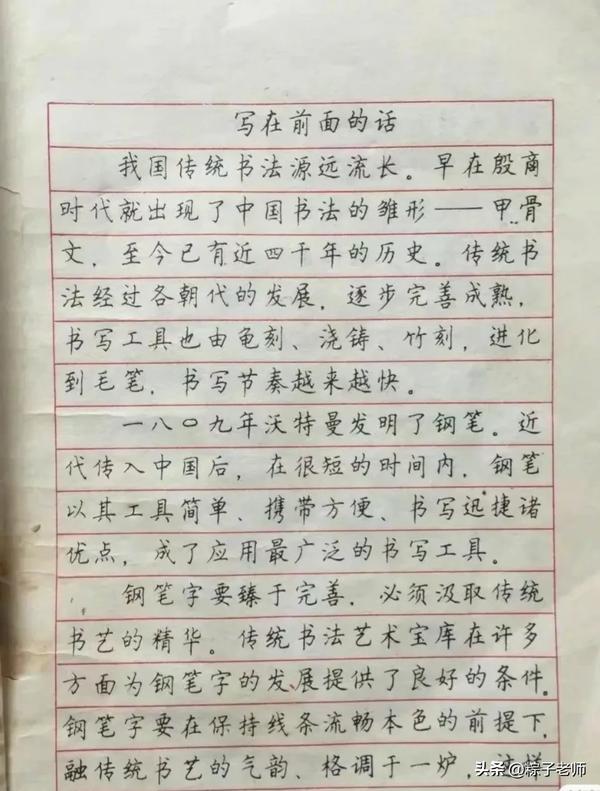 写在前面的话
我国传统书法源远流长。早在殷商
时代就出现了中国书法的雏形——甲骨
文，至今已有近四千年的历史。传统书
法经过各朝代的发展，逐步完善成熟，
书写工具也由龟刻、浇铸、竹刻，进化
到毛笔，书写节奏越来越快。
一八〇九年沃特曼发明了钢笔。近
代传入中国后，在很短的时间内，钢笔
以其工具简单、携带方便、书写迅捷诸
优点，成了应用最广泛的书写工具。
钢笔字要臻于完善，必须汲取传统
书艺的精华。传统书法艺术宝库在许多
方面为钢笔字的发展提供了良好的条件。
钢笔字要在保持线条流畅本色的前提下，
融传统书艺的气韵、格调于一炉，这样
头条@粽子老师